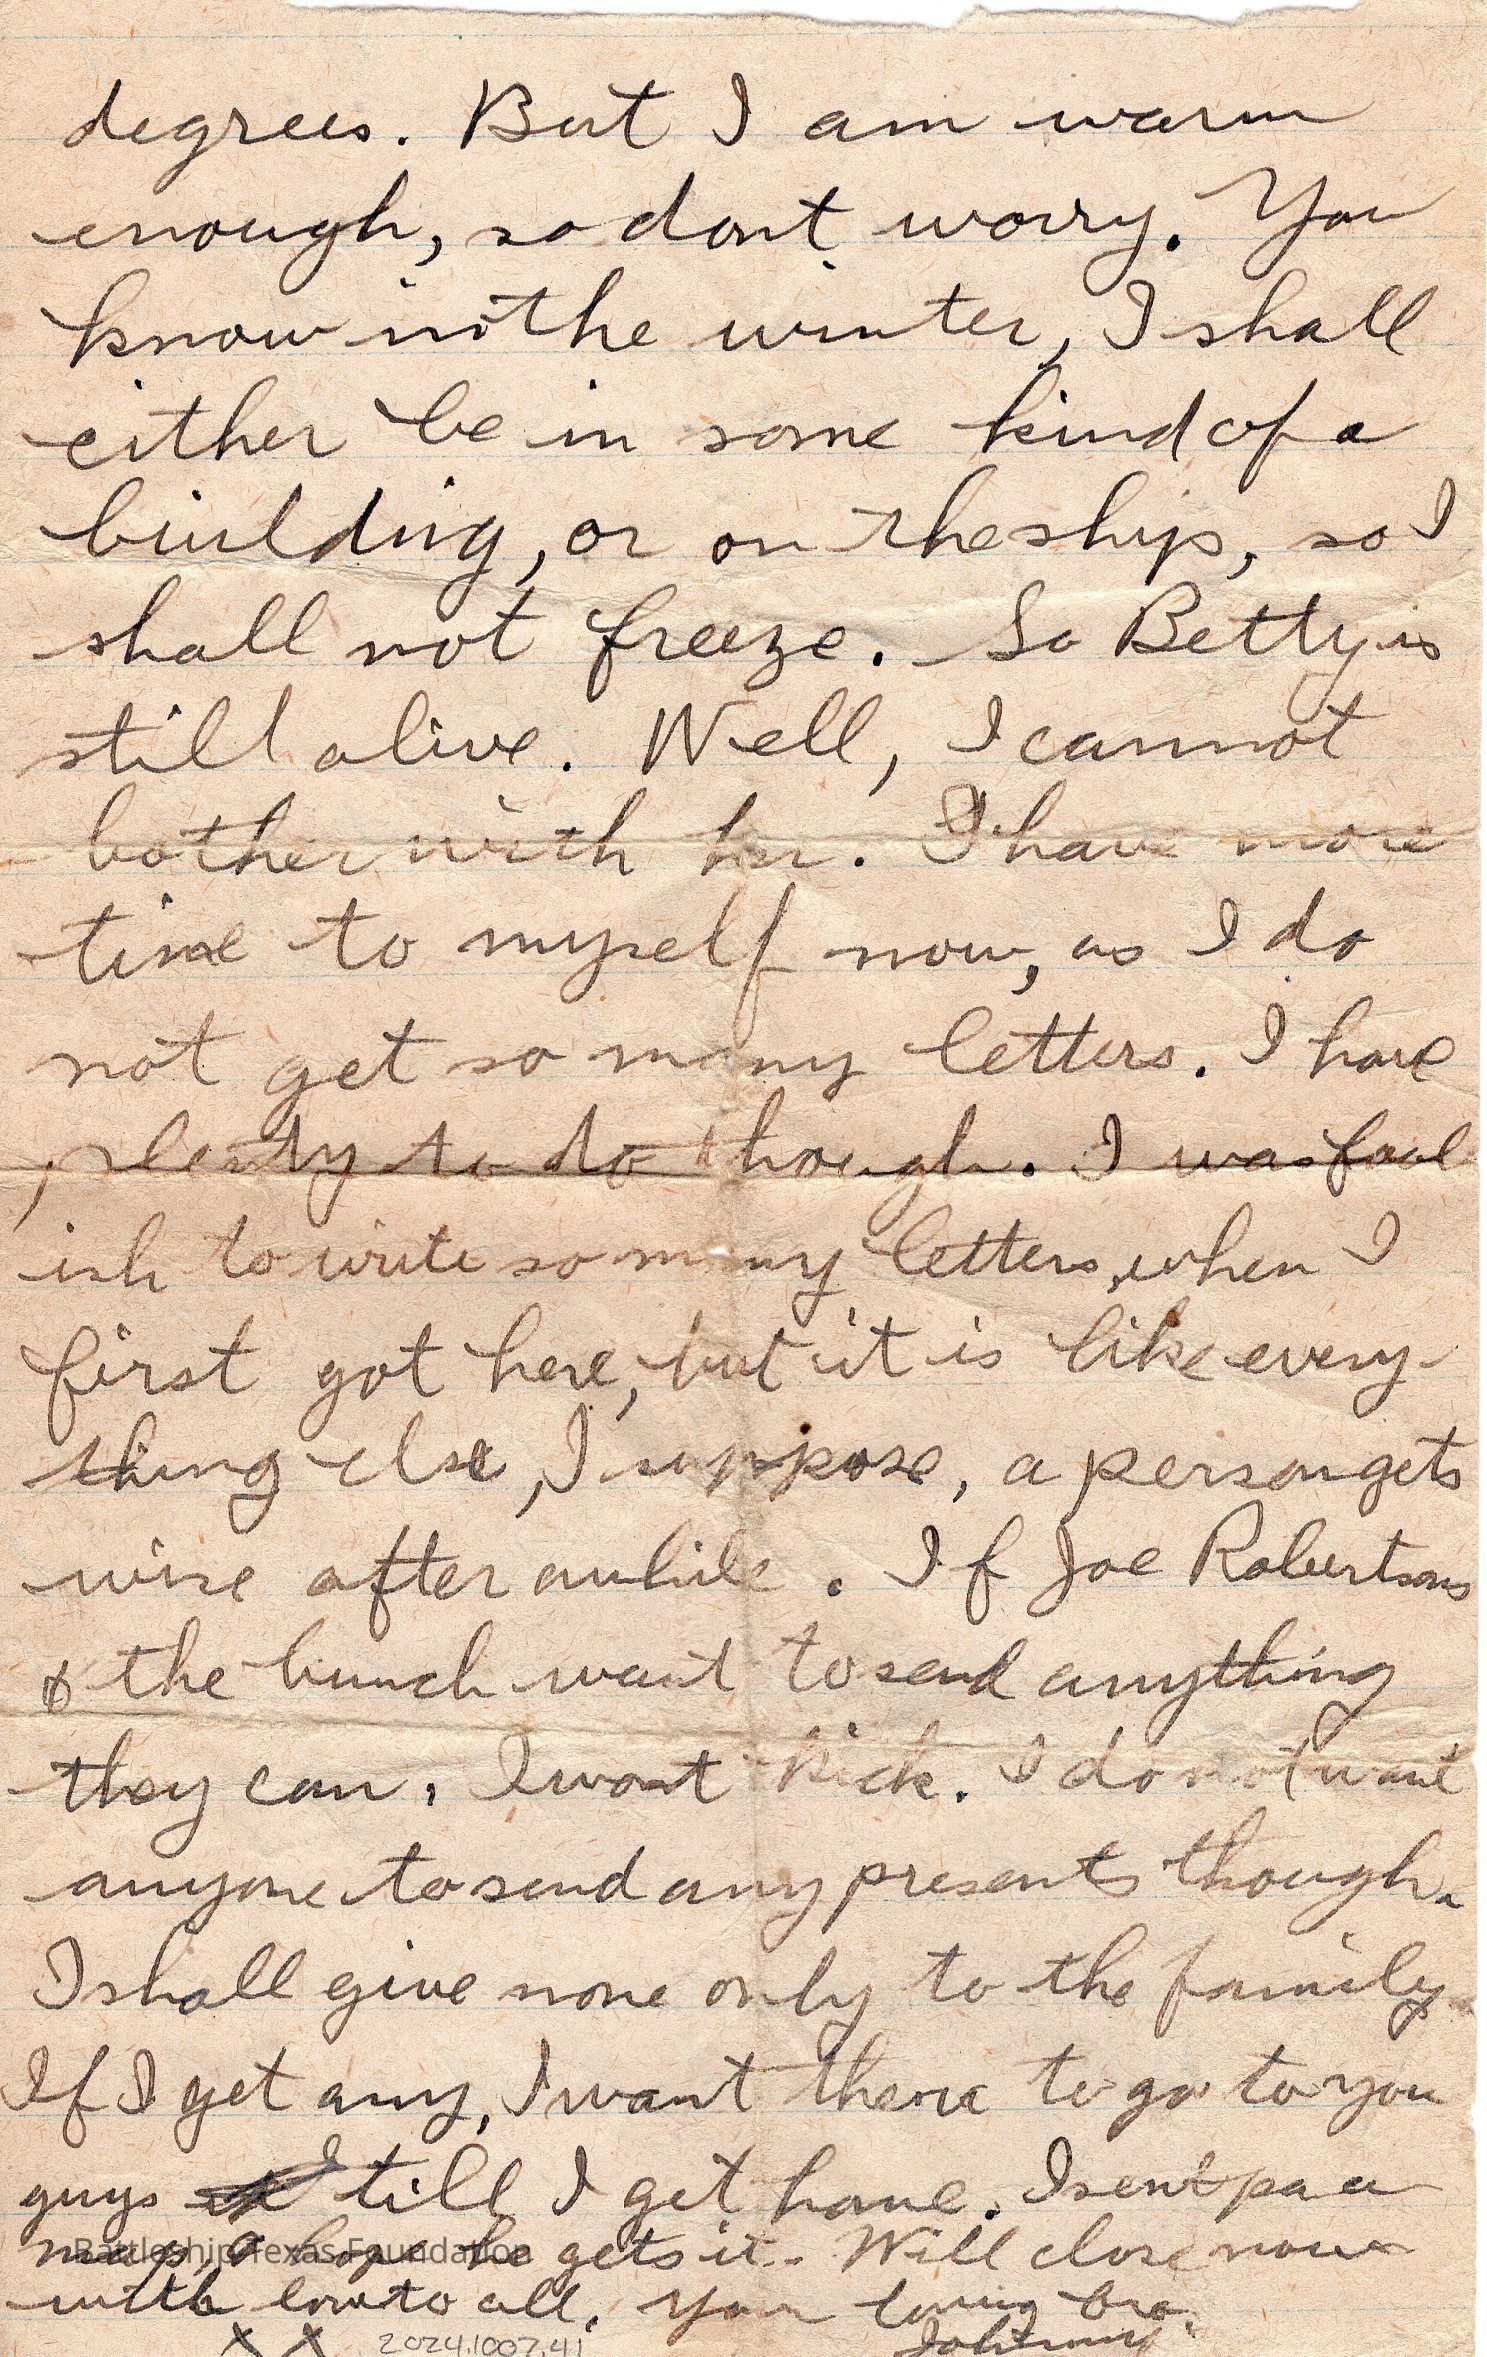 degrees. But I am warm
enough, so dont worry. You
know in the winter, I shall
either be in some kind of a
building, or on the ship, so I
shall not freeze. So Betty is
still alive. Well, I cannot
bother with her. I have more
time to myself now, as I do
not get so many letters. I have
plenty to do though. I was fool
ish to write so many letters, when I
first got here, but it is like every
thing else, I suppose, a person gets
wise after awhile. If Joe Robertsons
& the bunch want to send anything
they can, I wont kick. I do not want
anyone to send any presents though.
I shall give none only to the family.
If I get any, I want them to go to you
guys till I get home. I sent pa a
map, I hope he gets it. Will close now
Battleship Texas Foundation
with love to all. Your loving bro.
Johnny
X X 2024.1007.41